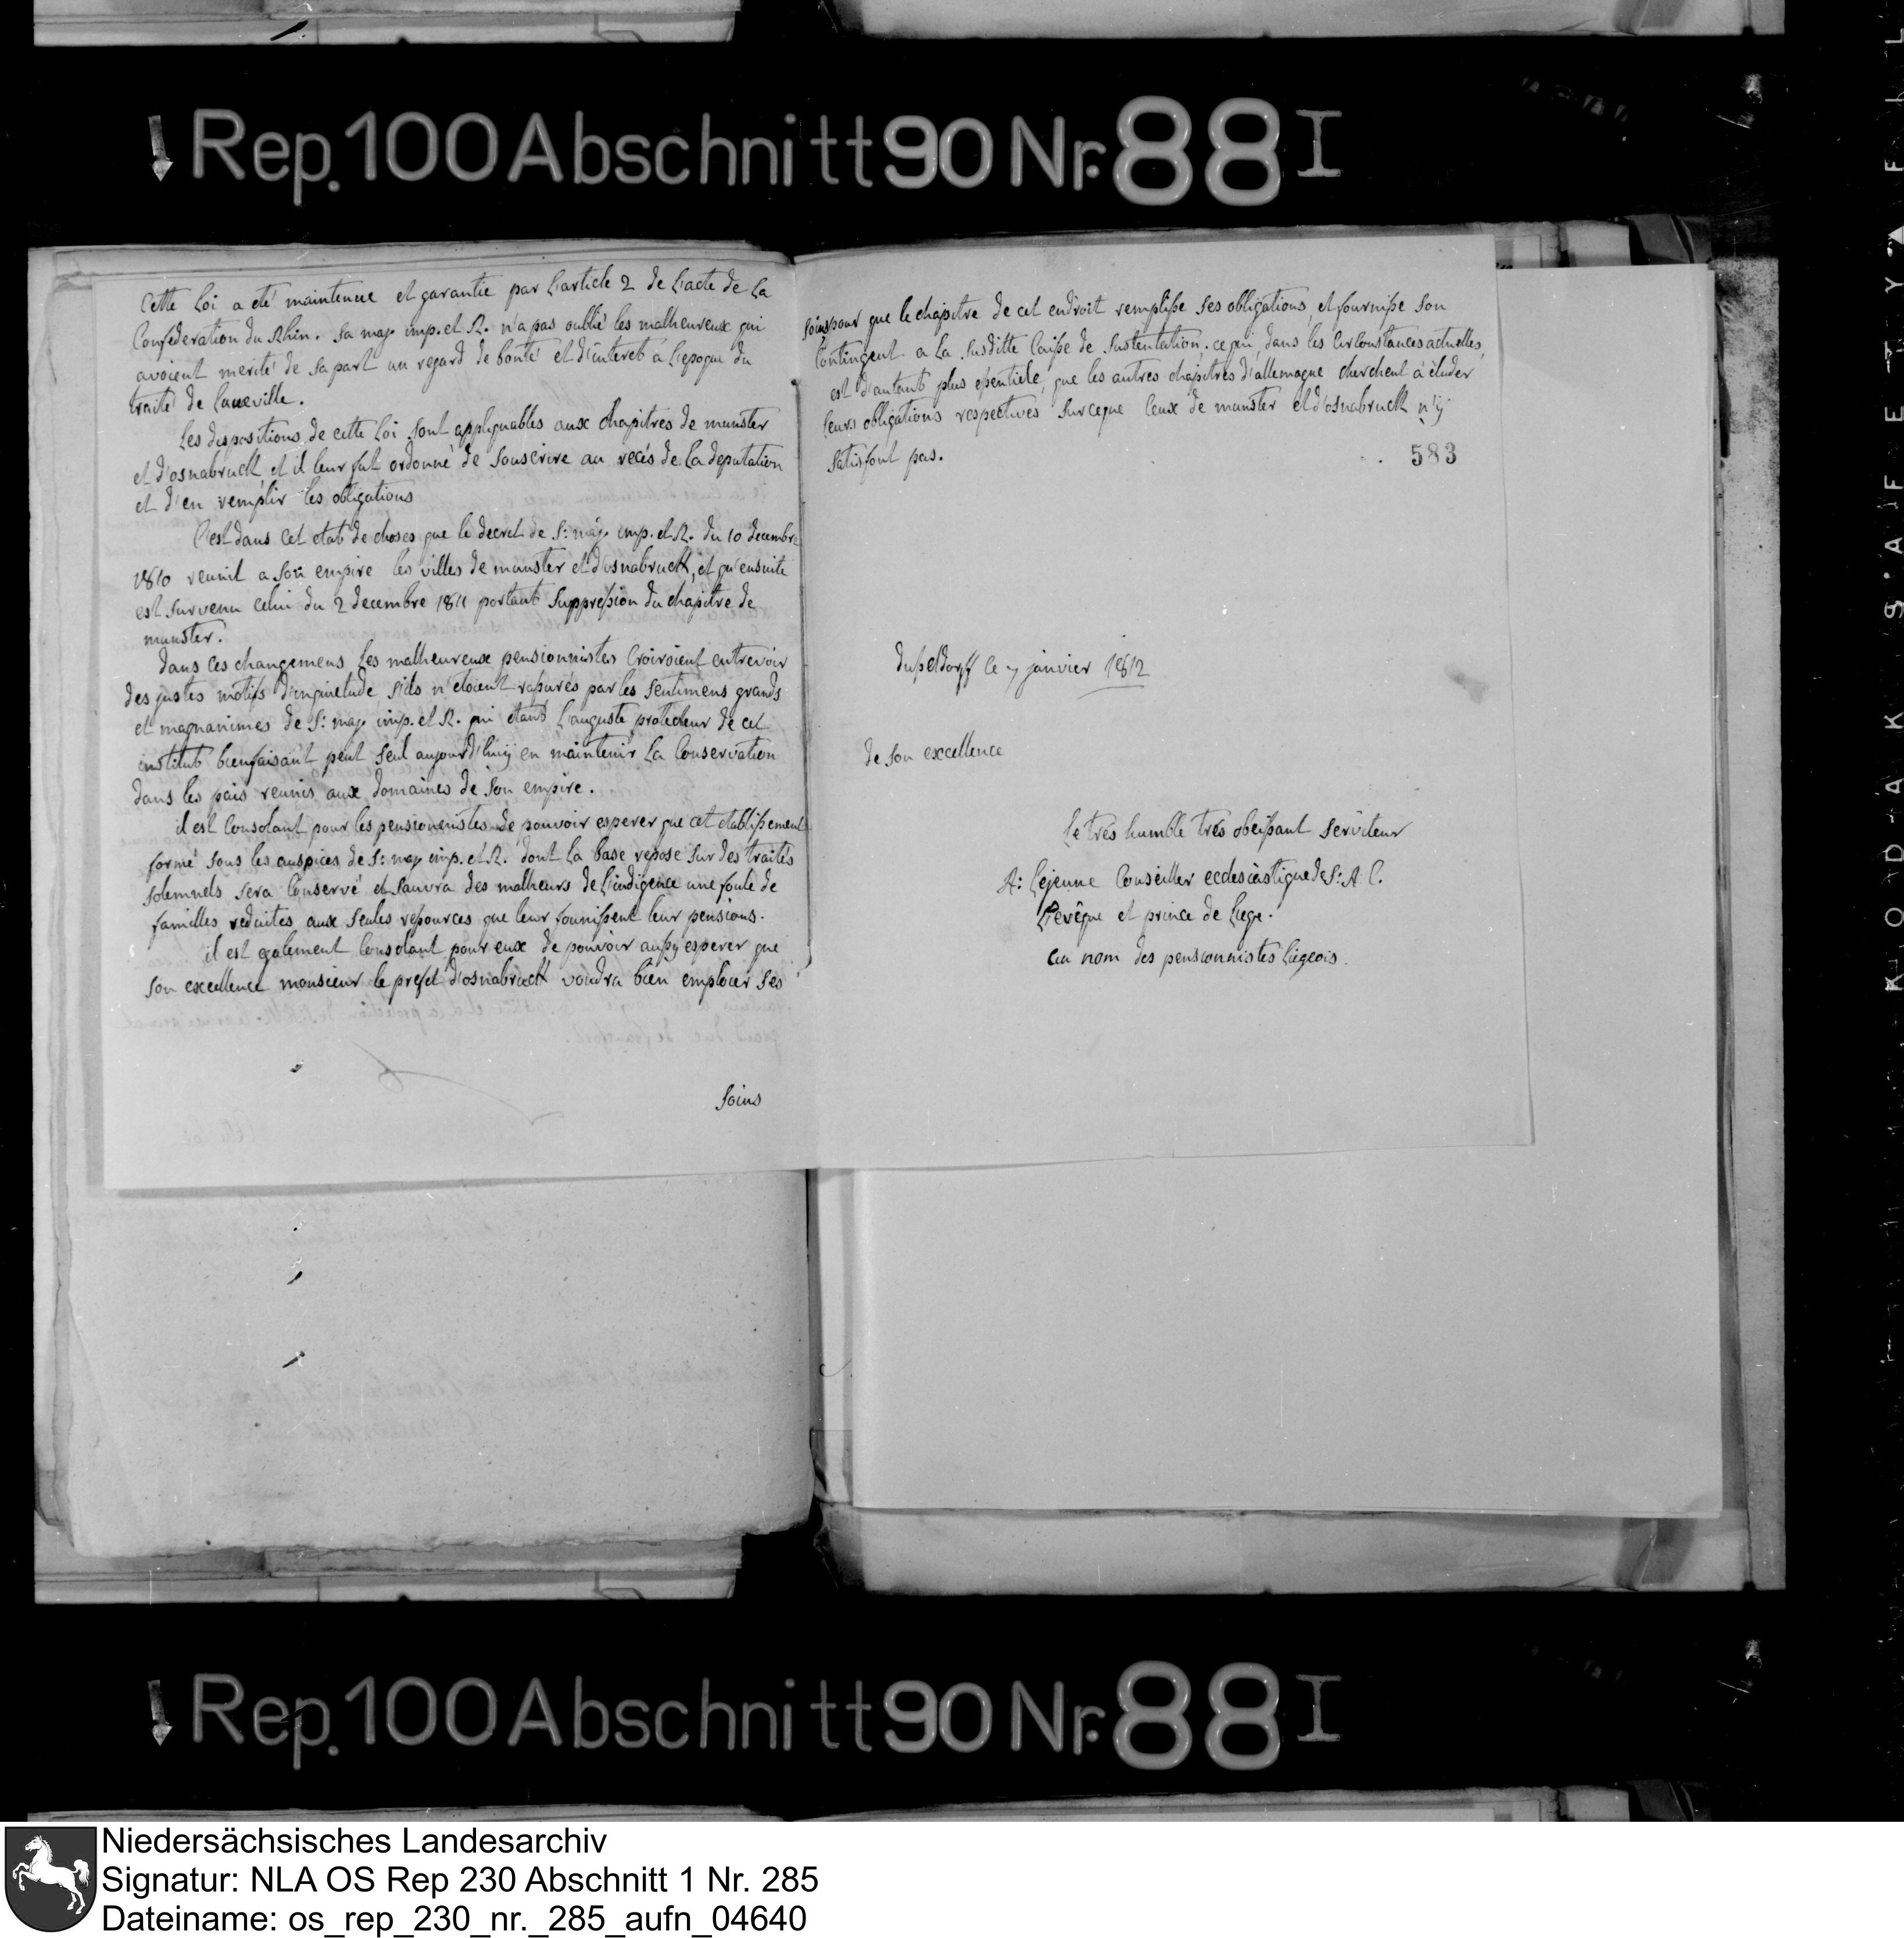 Rep.100 Abschnitt 90 Nr. 88 I
Cette Loi a eté maintenue et garantie par L'article 2 de L'acte de La
Confederation du Rhin. Sa maj. imp. et R. n'a pas oublié les malheureux qui
avoient merité de sa part un regard de bonté et d'interet a L'epoque du
traité de Luneville.
Les dispositions de cette Loi sont appliquables aux chapitres de munster
et d'osnabruck, et il leur fut ordonné de souscrire au recés de La deputation
et d'en remplir les obligations
C'est dans cet etat de choses que le decret de S: maj. imp. et R. du 10 decembre
1810 reunit a son empire les villes de munster et d'osnabruck, et qu'ensuite
est survenu celui du 2 decembre 1811 portant suppression du chapitre de
munster.
Dans ces changemens les malheureux pensionnistes croiroient entrevoir
des justes motifs d'inquietude s'ils n'etoient rassurés par les sentimens grands
et magnanimes de S: maj. imp. et R. qui etant L'auguste protecteur de cet
institut bienfaisant peut seul aujourd'huij en maintenir La Conservation
dans les païs reunis aux domaines de son empire.
il est Consolant pour les pensionnistes de pouvoir esperer que cet etablissement
formé sous les auspices de S: maj. imp. et R. dont La base repose sur des traités
solemnels sera Conservé et sauvra des malheurs de L'indigence une foule de
familles reduites aux seules ressources que leur fournissent leur pensions.
il est egalement Consolant pour eux de pouvoir aussy esperer que
son excellence monsieur le prefet d'osnabruck voudra bien emploier ses
soins
soins pour que le chapitre de cet endroit remplisse ses obligations, et fournisse son
Contingent a La susditte Caisse de sustentation; ce qui, dans les Circonstances actuelles,
est d'autant plus essentiele, que les autres chapitres d'allemagne cherchent a eluder
leurs obligations respectives surceque Ceux de munster et d'osnabruck n'ÿ
satisfont pas.
583
dusseldorff le 7 janvier 1812
de son excellence
Le trés humble trés obeissant serviteur
A: Lejeune Conseiller ecclesiastique de S: A C.
L'evêque et prince de Liege.
au nom des pensionnistes Liegeois.
Rep.100 Abschnitt 90 Nr. 88 I
KODAK SAFETY FIL
Niedersächsisches Landesarchiv
Signatur: NLA OS Rep 230 Abschnitt 1 Nr. 285
Dateiname: os_rep_230_nr._285_aufn_04640